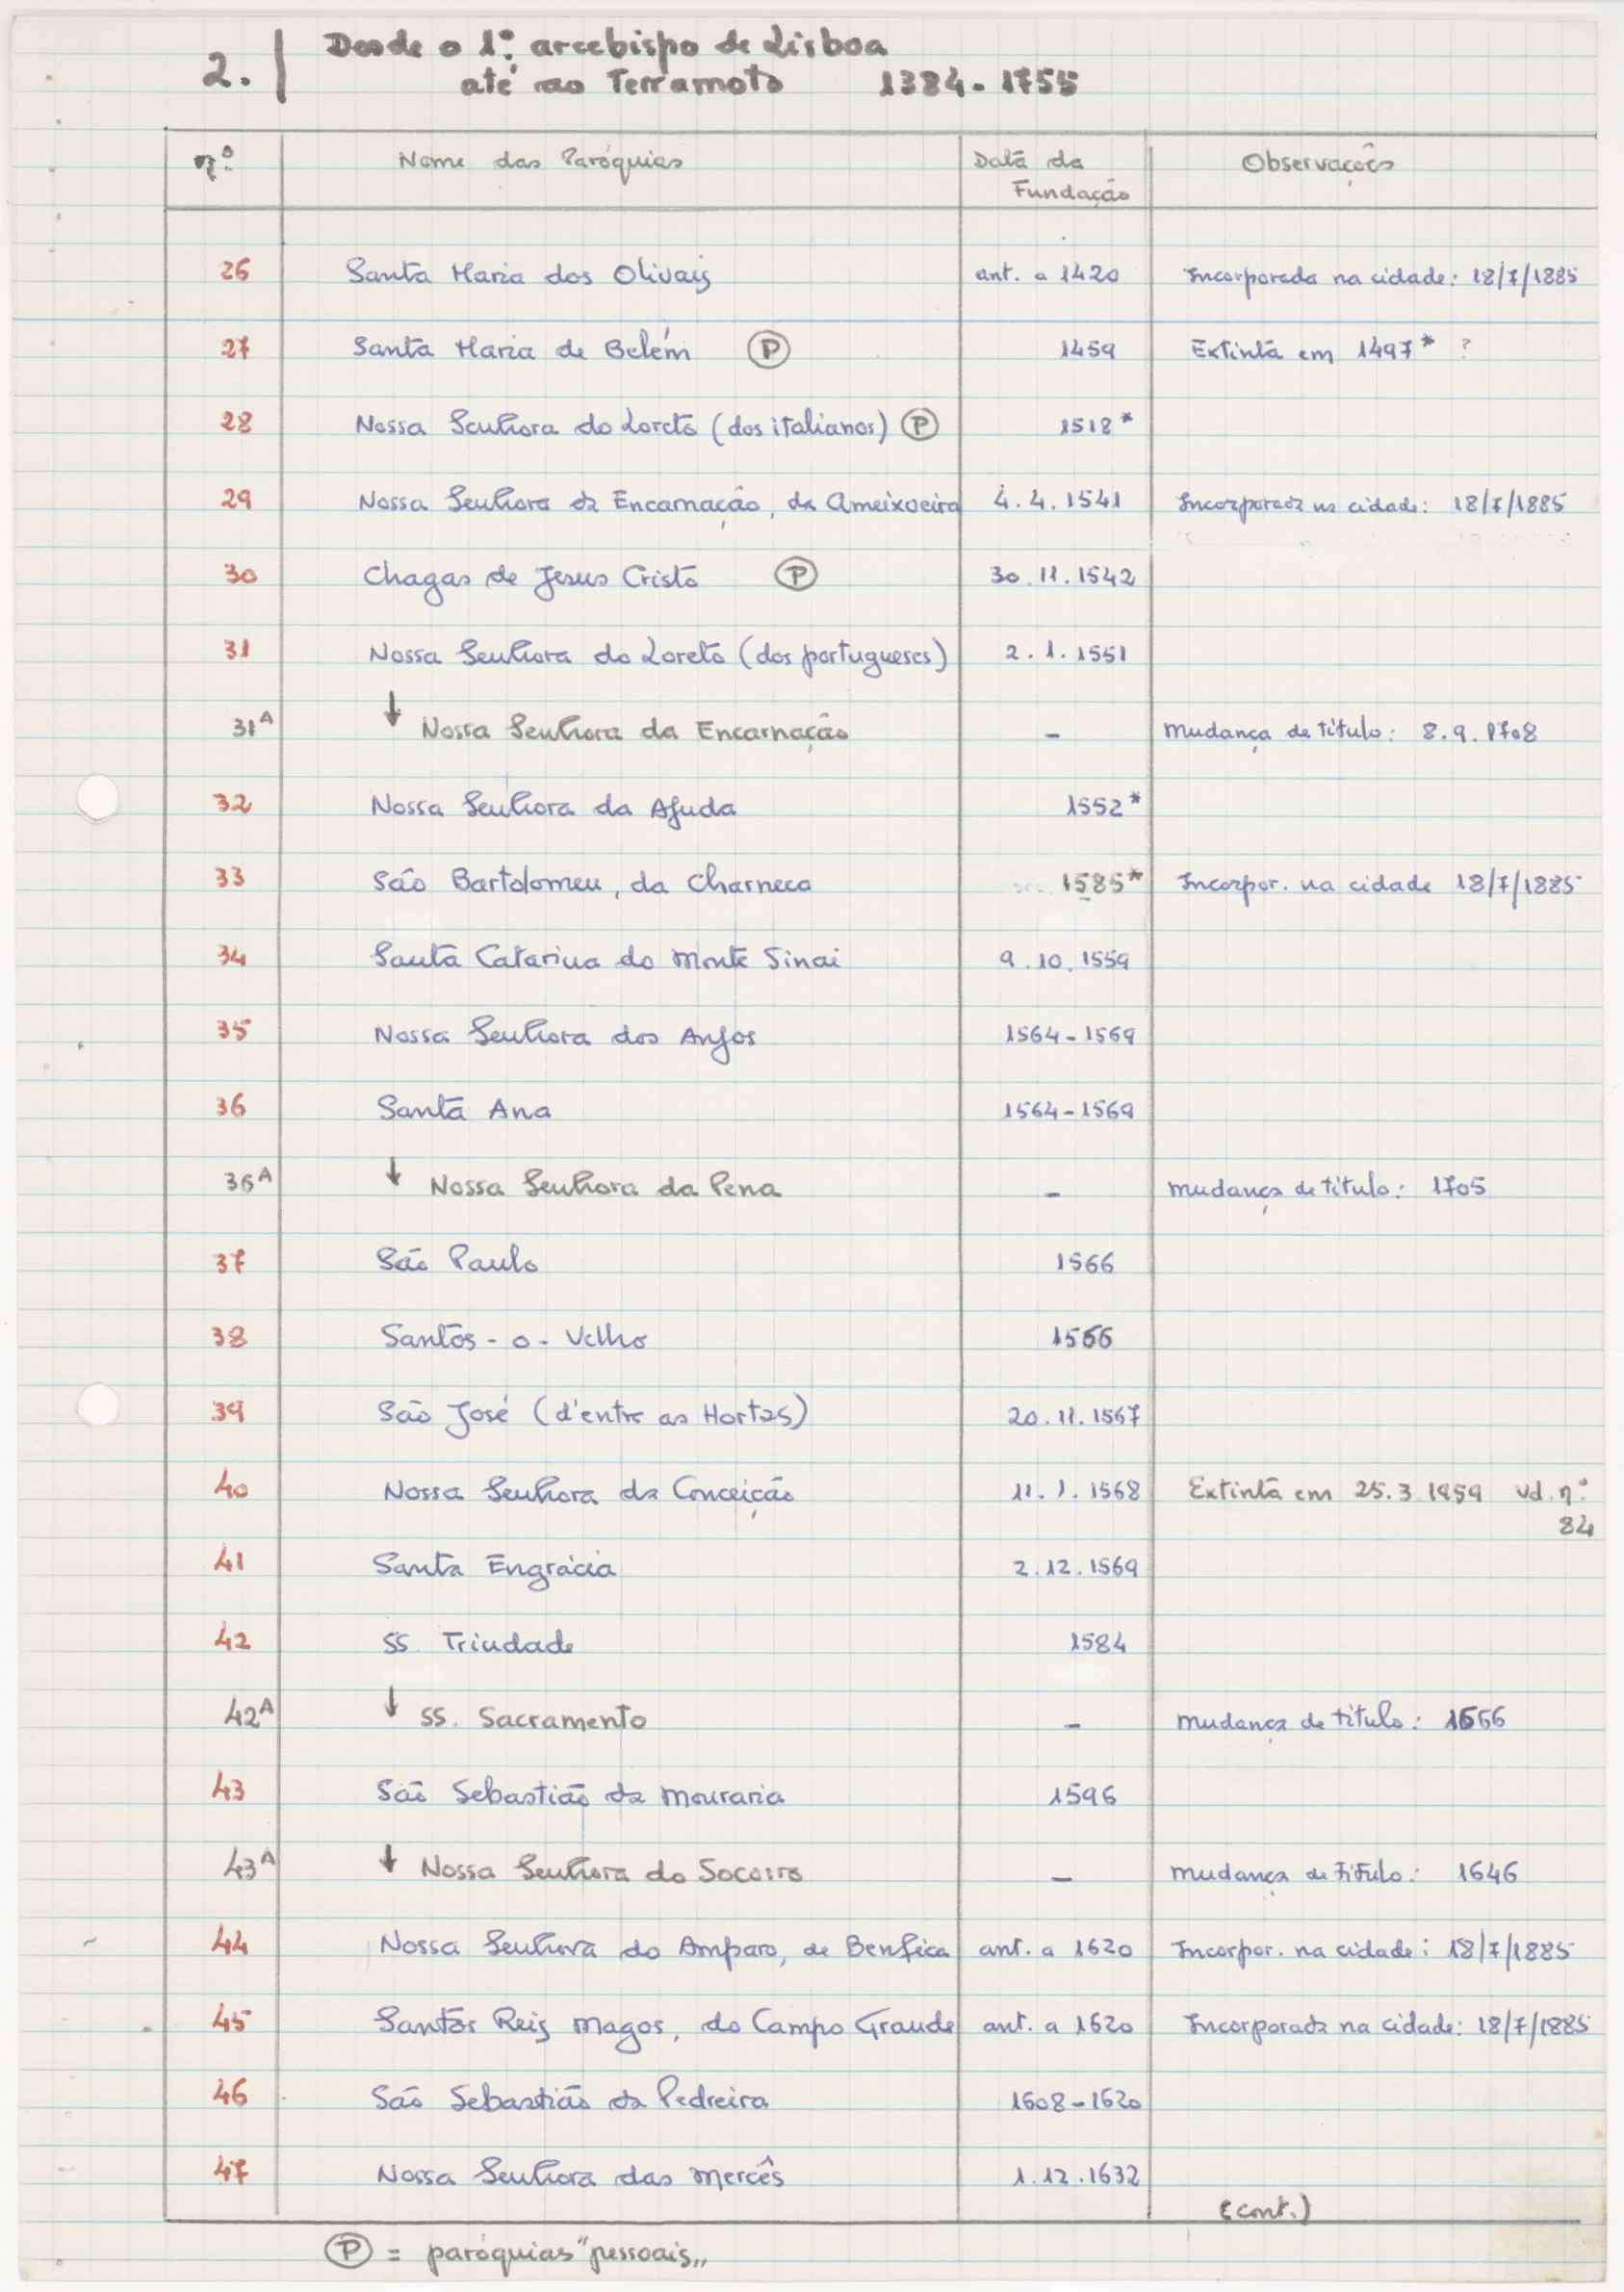 2. Desde o 1º. arcebispo de Lisboa
até ao Terramoto 1384-1755
nº. Nome das Paróquias Data da Fundação Observações
26 Santa Maria dos Olivais ant. a 1420 Incorporada na cidade: 18/7/1885
27 Santa Maria de Belém Ⓟ 1459 Extinta em 1497* ?
28 Nossa Senhora do Loreto (dos italianos) Ⓟ 1518*
29 Nossa Senhora da Encarnação, da Ameixoeira 4.4.1541 Incorporada na cidade: 18/7/1885
30 Chagas de Jesus Cristo Ⓟ 30.11.1542
31 Nossa Senhora do Loreto (dos portugueses) 2.1.1551
31A ↓ Nossa Senhora da Encarnação - Mudança de título: 8.9.1708
32 Nossa Senhora da Ajuda 1552*
33 São Bartolomeu, da Charneca 1585* Incorpor. na cidade 18/7/1885
34 Santa Catarina do Monte Sinai 9.10.1559
35 Nossa Senhora dos Anjos 1564-1569
36 Santa Ana 1564-1569
36A ↓ Nossa Senhora da Pena - Mudança de título: 1705
37 São Paulo 1566
38 Santos-o-Velho 1566
39 São José (d'entre as Hortas) 20.11.1567
40 Nossa Senhora da Conceição 11.1.1568 Extinta em 25.3.1959 vd. nº.
84
41 Santa Engrácia 2.12.1569
42 SS. Trindade 1584
42A ↓ SS. Sacramento - Mudança de título: 1666
43 São Sebastião da Mouraria 1596
43A ↓ Nossa Senhora do Socorro - Mudança de título: 1646
44 Nossa Senhora do Amparo, de Benfica ant. a 1620 Incorpor. na cidade: 18/7/1885
45 Santos Reis Magos, do Campo Grande ant. a 1620 Incorporada na cidade: 18/7/1885
46 São Sebastião da Pedreira 1608-1620
47 Nossa Senhora das Mercês 1.12.1632
(cont.)
Ⓟ = paróquias "pessoais"